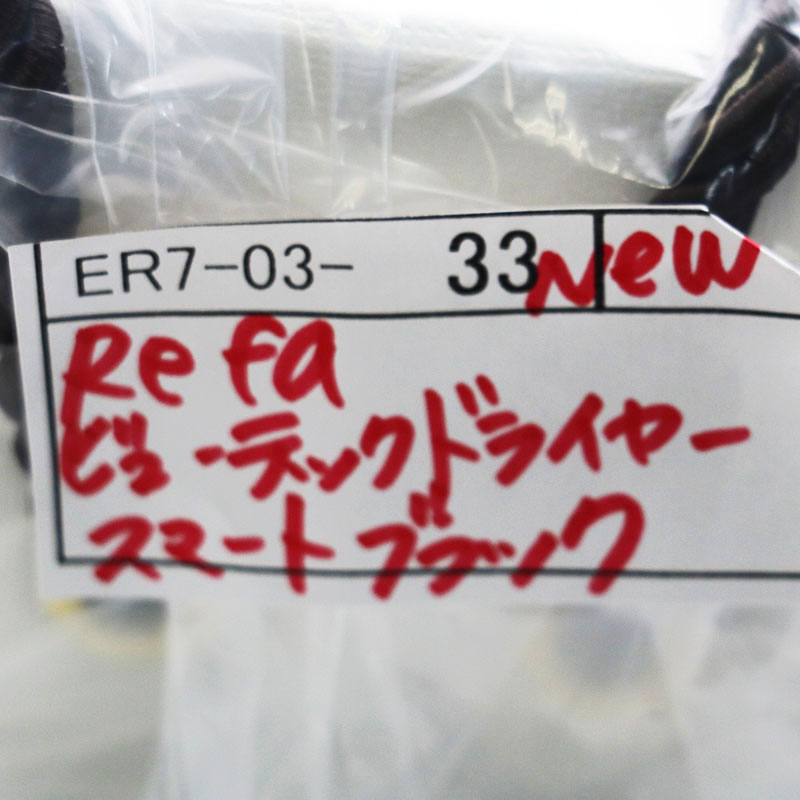 ER7-03- 33 New
ReFa
ビューテックドライヤー
スマート ブラック